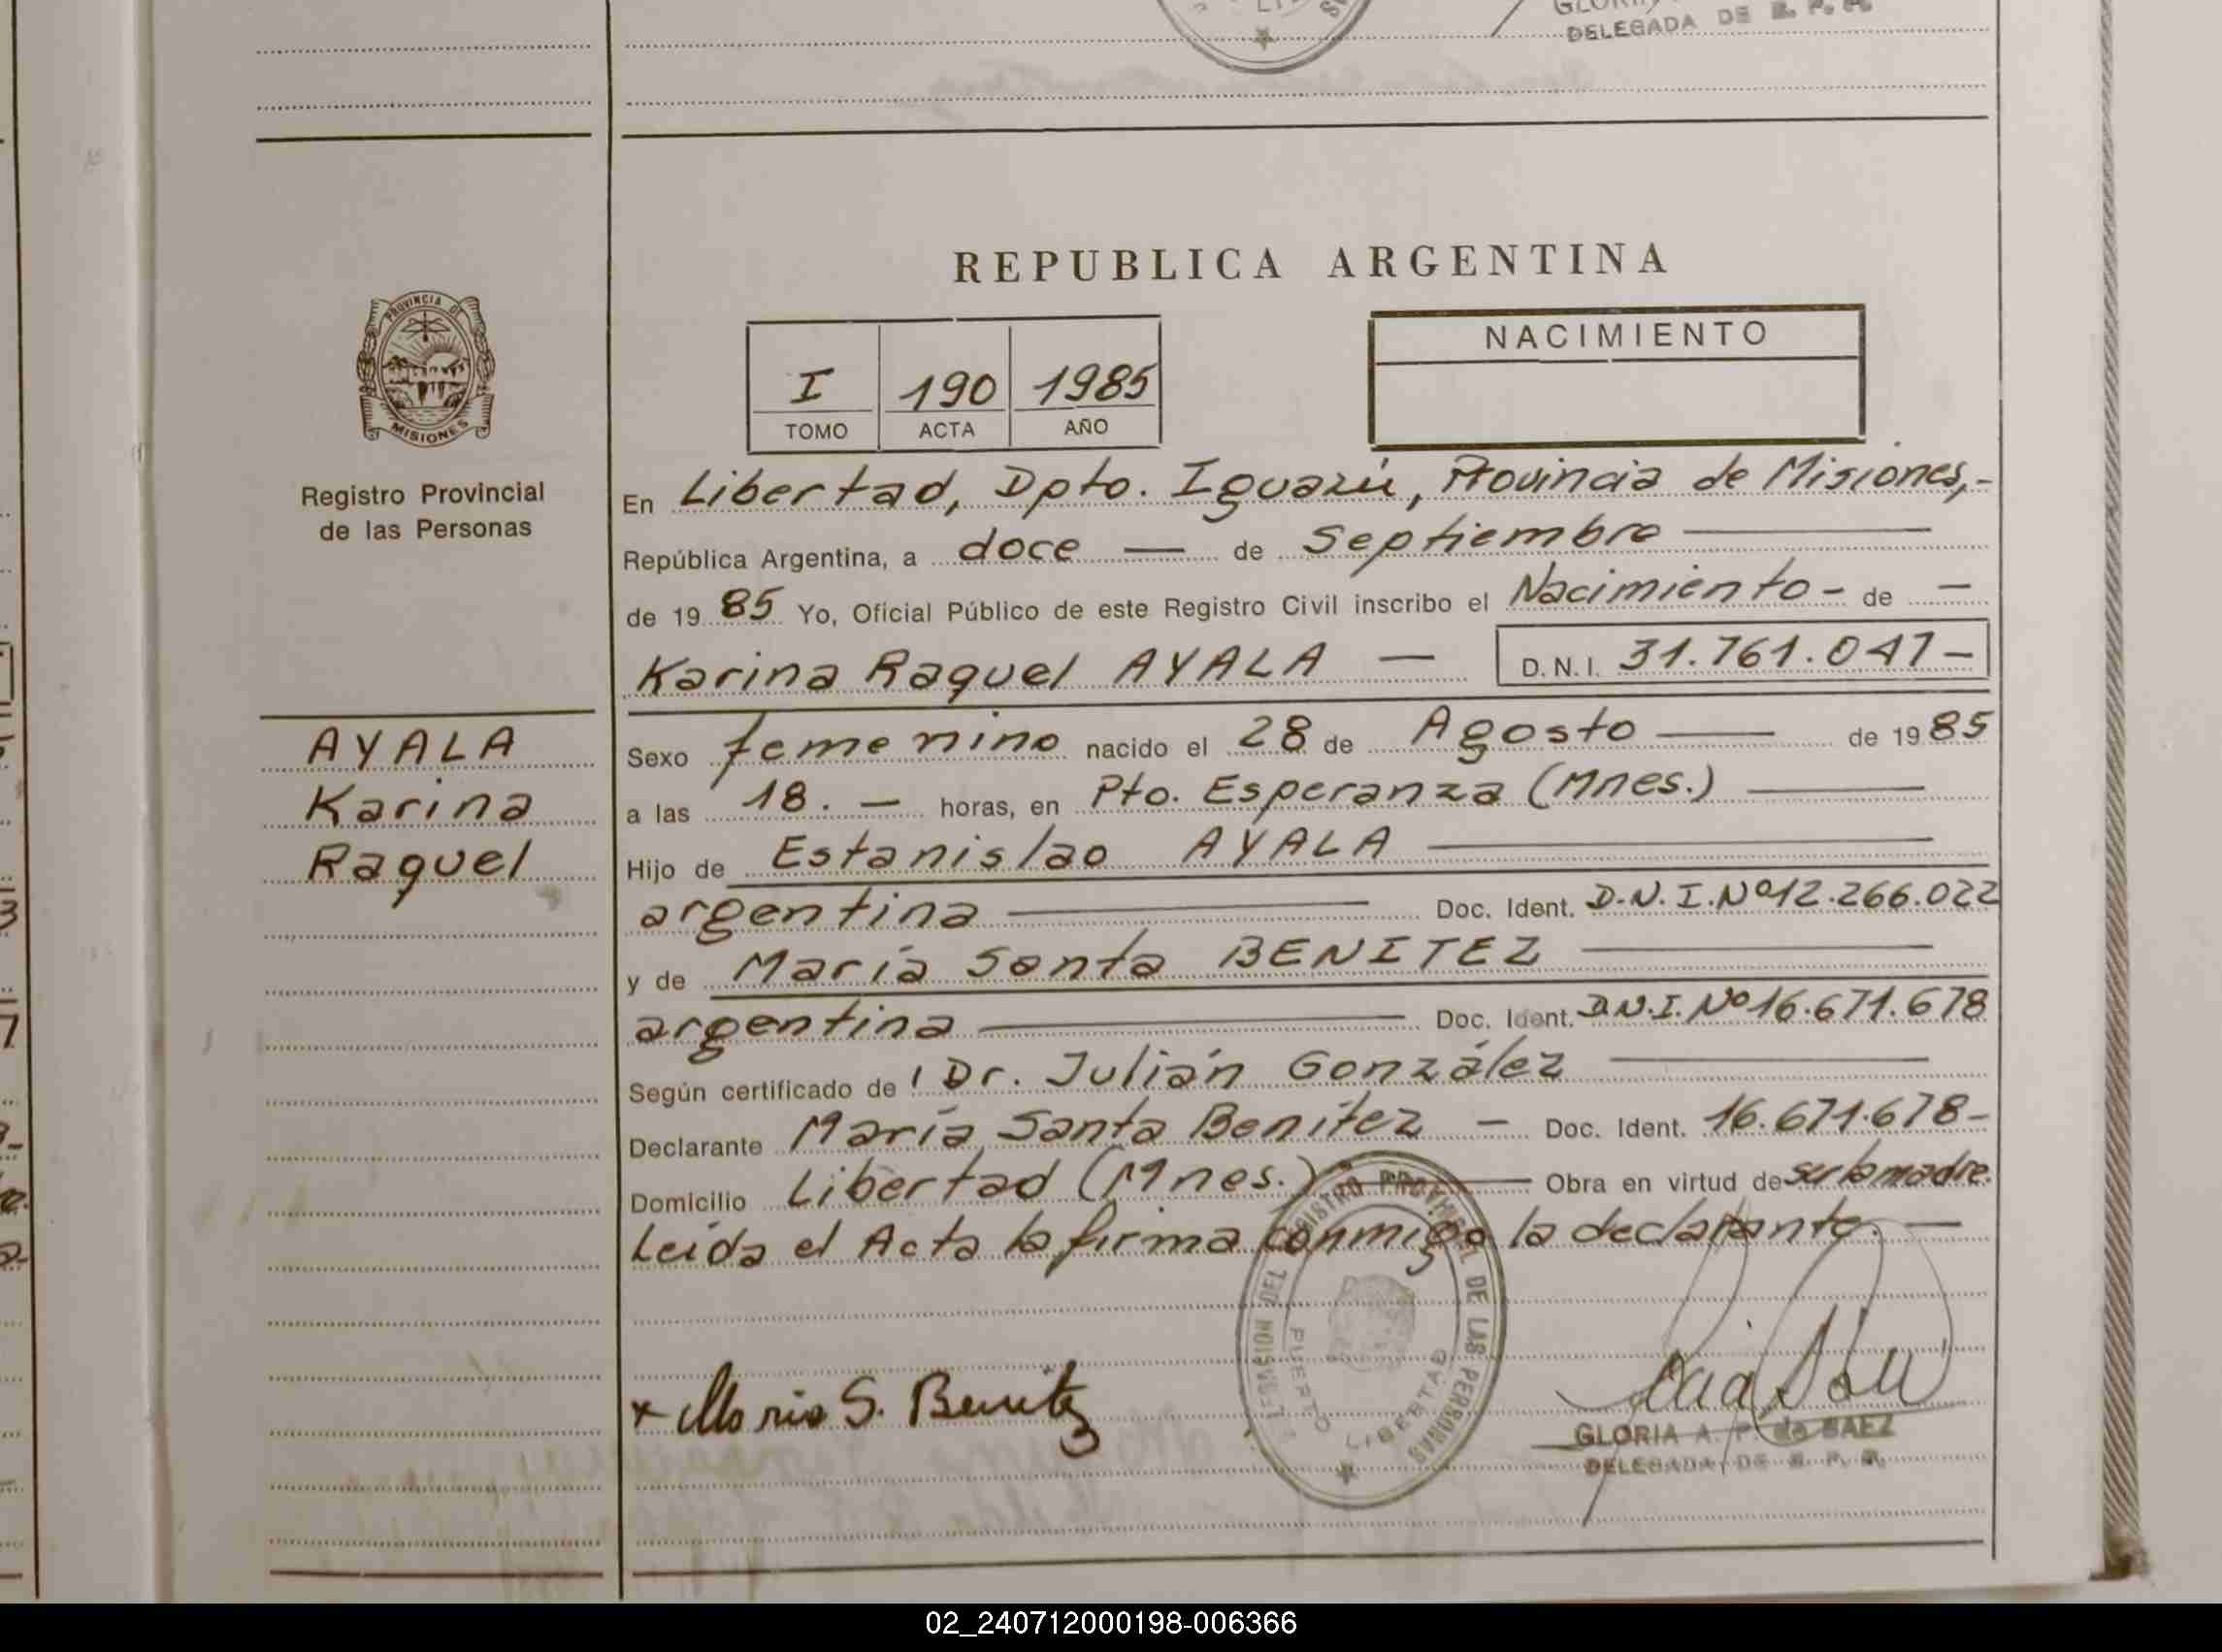 DELEGADA DE R. P. P.
REPUBLICA ARGENTINA
PROVINCIA DE
MISIONES
Registro Provincial
de las Personas
I 190 1985
TOMO ACTA AÑO
NACIMIENTO
En Libertad, Dpto. Iguazú, Provincia de Misiones,-
República Argentina, a doce — de Septiembre —
de 1985 Yo, Oficial Público de este Registro Civil inscribo el Nacimiento - de —
Karina Raquel AYALA — D.N.I. 31.761.047-
AYALA
Karina
Raquel
Sexo femenino nacido el 28 de Agosto — de 1985
a las 18. — horas, en Pto. Esperanza (Mnes.) —
Hijo de Estanislao AYALA —
argentina — Doc. Ident. D.N.I.Nº12.266.022
y de María Santa BENITEZ —
argentina — Doc. Ident. D.N.I.Nº16.671.678
Según certificado de Dr. Julián González —
Declarante María Santa Benítez — Doc. Ident. 16.671.678-
Domicilio Libertad (Mnes.) — Obra en virtud de ser la madre.
Leída el Acta la firma conmigo la declarante. —
DELEGACION DEL REGISTRO PROVINCIAL DE LAS PERSONAS
PUERTO LIBERTAD
x Maria S. Benitez
GLORIA A. P. de BAEZ
DELEGADA DE R. P. P.
02_240712000198-006366